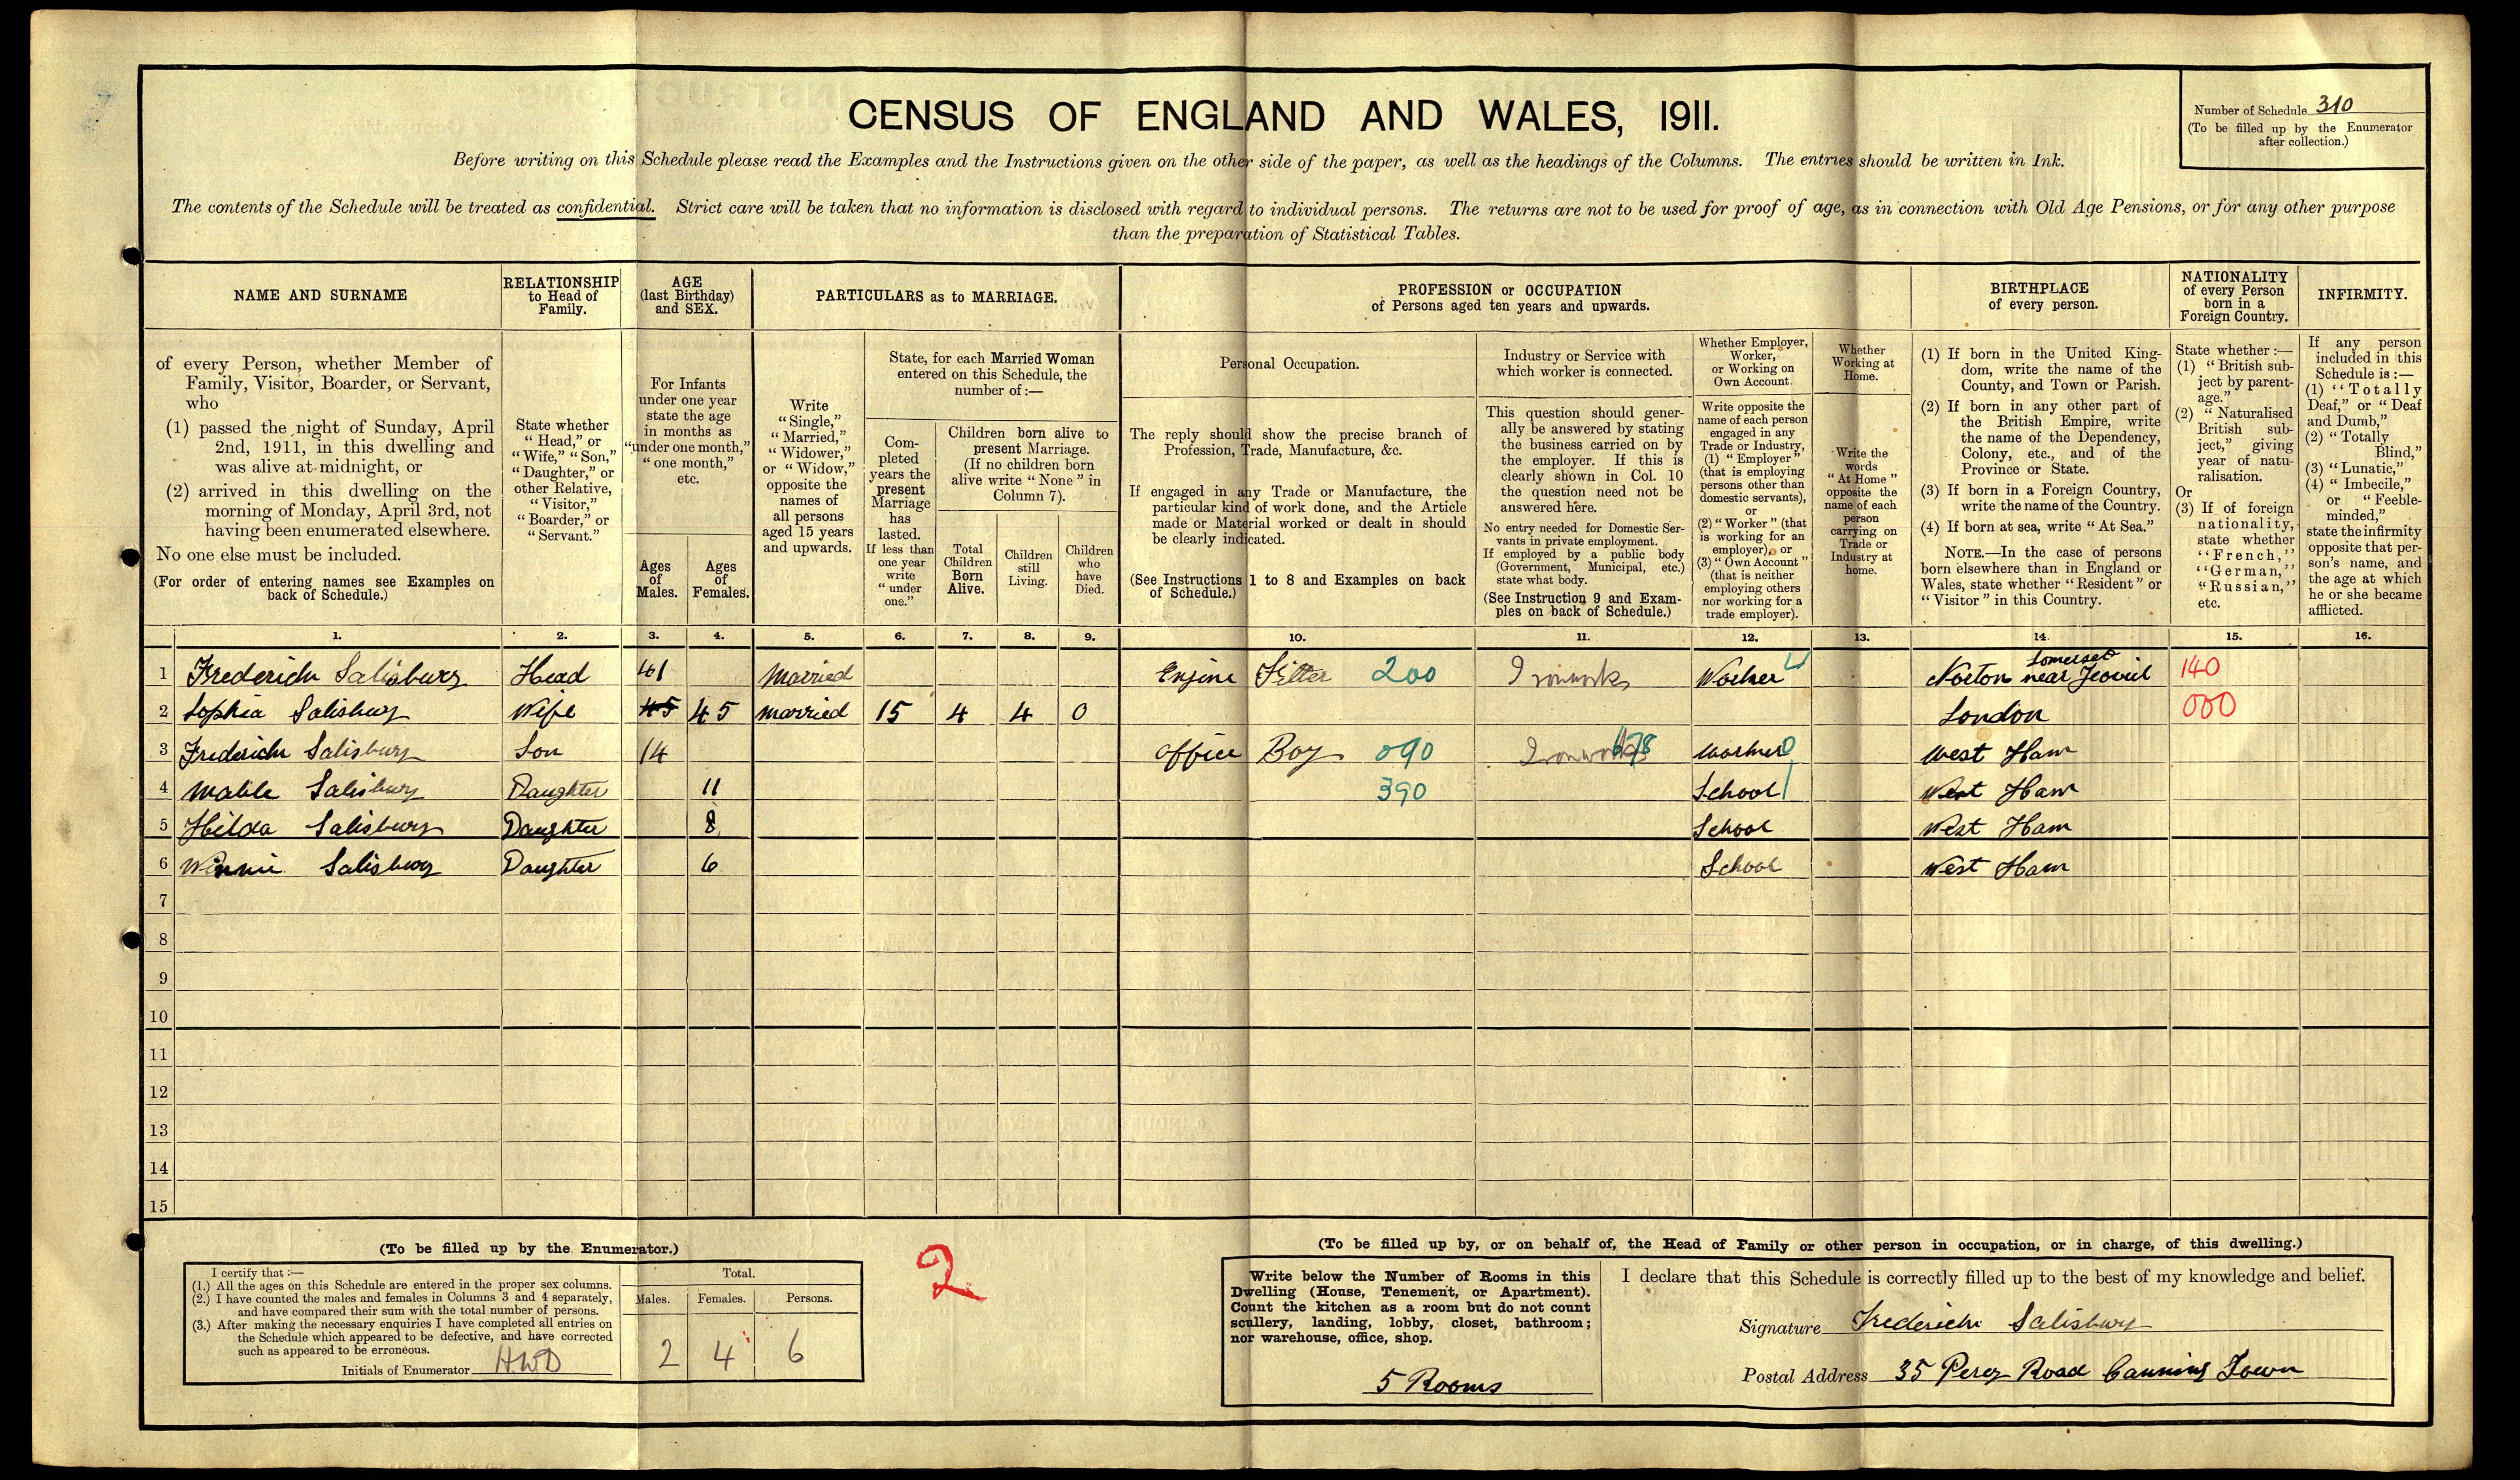 CENSUS OF ENGLAND AND WALES, 1911.
Number of Schedule 310
(To be filled up by the Enumerator
after collection.)
Before writing on this Schedule please read the Examples and the Instructions given on the other side of the paper, as well as the headings of the Columns. The entries should be written in Ink.
The contents of the Schedule will be treated as confidential. Strict care will be taken that no information is disclosed with regard to individual persons. The returns are not to be used for proof of age, as in connection with Old Age Pensions, or for any other purpose
than the preparation of Statistical Tables.
NAME AND SURNAME
of every Person, whether Member of
Family, Visitor, Boarder, or Servant,
who
(1) passed the night of Sunday, April
2nd, 1911, in this dwelling and
was alive at midnight, or
(2) arrived in this dwelling on the
morning of Monday, April 3rd, not
having been enumerated elsewhere.
No one else must be included.
(For order of entering names see Examples on
back of Schedule.)
RELATIONSHIP
to Head of
Family.
State whether
"Head," or
"Wife," "Son,"
"Daughter," or
other Relative,
"Visitor,"
"Boarder," or
"Servant."
AGE
(last Birthday)
and SEX.
For Infants
under one year
state the age
in months as
"under one month,"
"one month,"
etc.
Ages
of
Males.
Ages
of
Females.
PARTICULARS as to MARRIAGE.
Write
"Single,"
"Married,"
"Widower,"
or "Widow,"
opposite the
names of
all persons
aged 15 years
and upwards.
State, for each Married Woman
entered on this Schedule, the
number of:—
Com-
pleted
years the
present
Marriage
has
lasted.
If less than
one year
write
"under
one."
Children born alive to
present Marriage.
(If no children born
alive write "None" in
Column 7).
Total
Children
Born
Alive.
Children
still
Living.
Children
who
have
Died.
PROFESSION or OCCUPATION
of Persons aged ten years and upwards.
Personal Occupation.
The reply should show the precise branch of
Profession, Trade, Manufacture, &c.
If engaged in any Trade or Manufacture, the
particular kind of work done, and the Article
made or Material worked or dealt in should
be clearly indicated.
(See Instructions 1 to 8 and Examples on back
of Schedule.)
Industry or Service with
which worker is connected.
This question should gener-
ally be answered by stating
the business carried on by
the employer. If this is
clearly shown in Col. 10
the question need not be
answered here.
No entry needed for Domestic Ser-
vants in private employment.
If employed by a public body
(Government, Municipal, etc.)
state what body.
(See Instruction 9 and Exam-
ples on back of Schedule.)
Whether Employer,
Worker,
or Working on
Own Account.
Write opposite the
name of each person
engaged in any
Trade or Industry,
(1) "Employer"
(that is employing
persons other than
domestic servants),
or
(2) "Worker" (that
is working for an
employer), or
(3) "Own Account"
(that is neither
employing others
nor working for a
trade employer).
Whether
Working at
Home.
Write the
words
"At Home"
opposite the
name of each
person
carrying on
Trade or
Industry at
home.
BIRTHPLACE
of every person.
(1) If born in the United King-
dom, write the name of the
County, and Town or Parish.
(2) If born in any other part of
the British Empire, write
the name of the Dependency,
Colony, etc., and of the
Province or State.
(3) If born in a Foreign Country,
write the name of the Country.
(4) If born at sea, write "At Sea."
NOTE.—In the case of persons
born elsewhere than in England or
Wales, state whether "Resident" or
"Visitor" in this Country.
NATIONALITY
of every Person
born in a
Foreign Country.
State whether:—
(1) "British sub-
ject by parent-
age."
(2) "Naturalised
British sub-
ject," giving
year of natu-
ralisation.
Or
(3) If of foreign
nationality,
state whether
"French,"
"German,"
"Russian,"
etc.
INFIRMITY.
If any person
included in this
Schedule is:—
(1) "Totally
Deaf," or "Deaf
and Dumb,"
(2) "Totally
Blind,"
(3) "Lunatic,"
(4) "Imbecile,"
or "Feeble-
minded,"
state the infirmity
opposite that per-
son's name, and
the age at which
he or she became
afflicted.
1. 2. 3. 4. 5. 6. 7. 8. 9. 10. 11. 12. 13. 14. 15. 16.
1 Frederick Salisbury Head 41 Married Engine Fitter 200 Ironworks Worker Somerset Norton near Yeovil 140
2 Sophia Salisbury Wife 45 45 married 15 4 4 0 London 000
3 Frederick Salisbury Son 14 office Boy 090 Ironworks 678 worker 0 West Ham
4 Mable Salisbury Daughter 11 390 School West Ham
5 Hilda Salisbury Daughter 8 School West Ham
6 Winnie Salisbury Daughter 6 School West Ham
7
8
9
10
11
12
13
14
15
(To be filled up by the Enumerator.)
I certify that:—
(1.) All the ages on this Schedule are entered in the proper sex columns.
(2.) I have counted the males and females in Columns 3 and 4 separately,
and have compared their sum with the total number of persons.
(3.) After making the necessary enquiries I have completed all entries on
the Schedule which appeared to be defective, and have corrected
such as appeared to be erroneous.
Initials of Enumerator HWD
Total.
Males. Females. Persons.
2 4 6
2
(To be filled up by, or on behalf of, the Head of Family or other person in occupation, or in charge, of this dwelling.)
Write below the Number of Rooms in this
Dwelling (House, Tenement, or Apartment).
Count the kitchen as a room but do not count
scullery, landing, lobby, closet, bathroom;
nor warehouse, office, shop.
5 Rooms
I declare that this Schedule is correctly filled up to the best of my knowledge and belief.
Signature Frederick Salisbury
Postal Address 35 Percy Road Canning Town